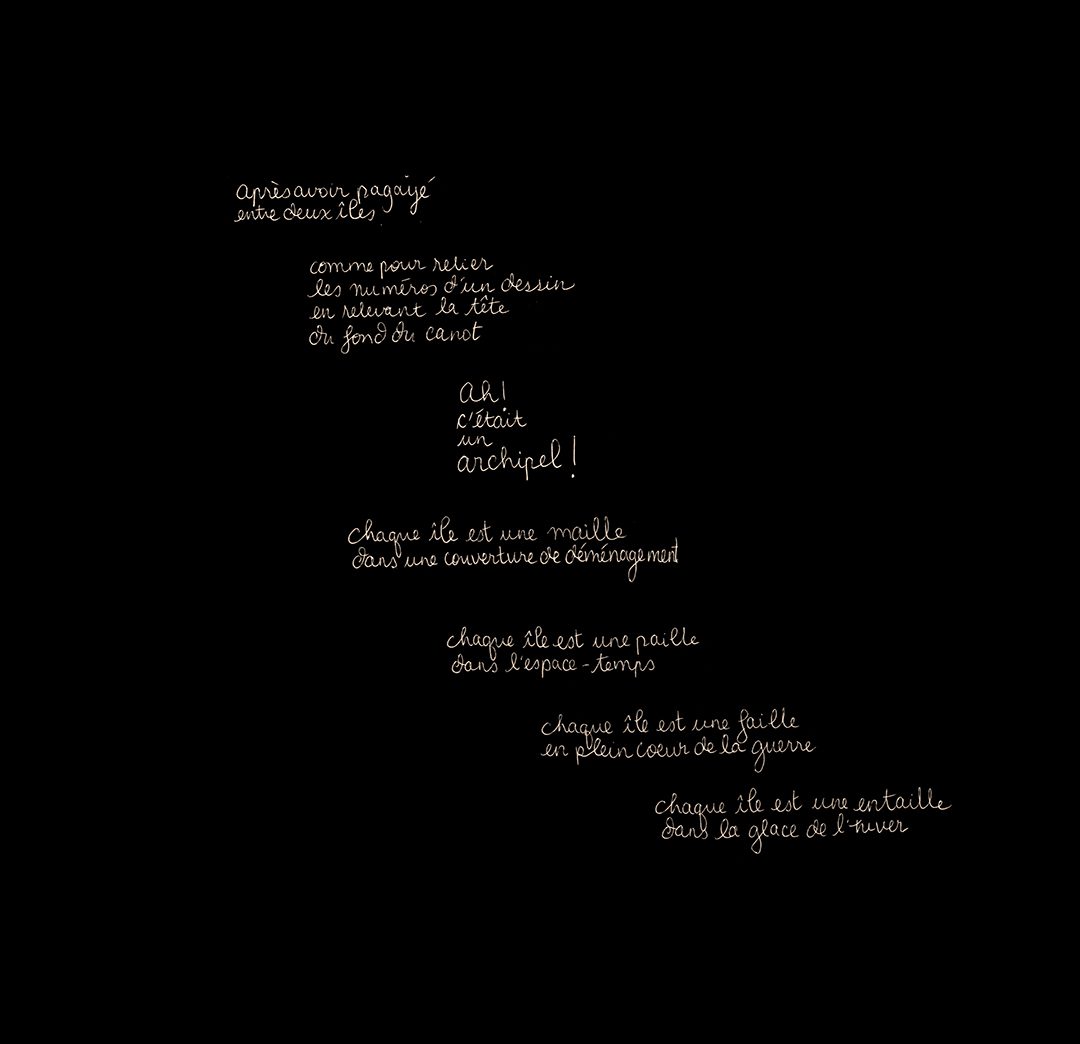 après avoir pagayé
entre deux îles
comme pour relier
les numéros d'un dessin
en relevant la tête
du fond du canot
Ah!
c'était
un
archipel!
chaque île est une maille
dans une couverture de déménagement
chaque île est une paille
dans l'espace-temps
chaque île est une faille
en plein coeur de la guerre
chaque île est une entaille
dans la glace de l'hiver